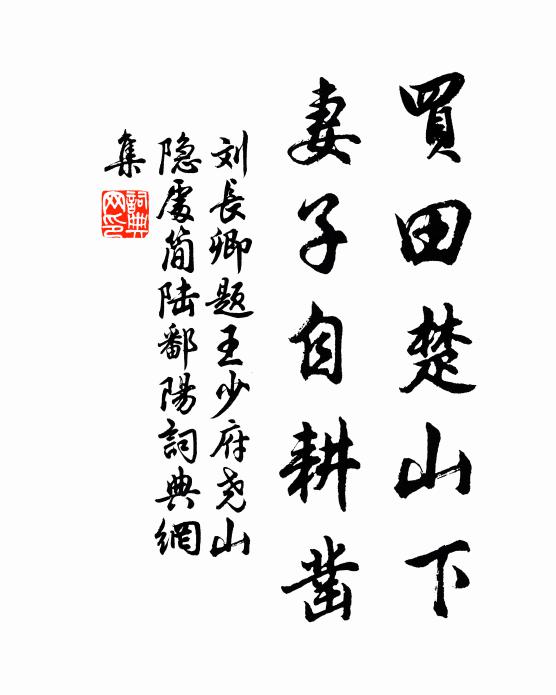 買田楚山下
妻子自耕凿
刘長卿题王少府尧山
隐處简陆鄱陽詞典網
集
詞典
网印